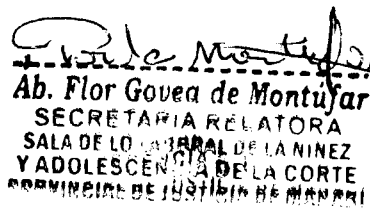 Ab. Flor Govea de Montúfar
SECRETARIA RELATORA
SALA DE LO LABORAL DE LA NINEZ
Y ADOLESCENCIA DE LA CORTE
PROVINCIAL DE JUSTICIA DE MANABI